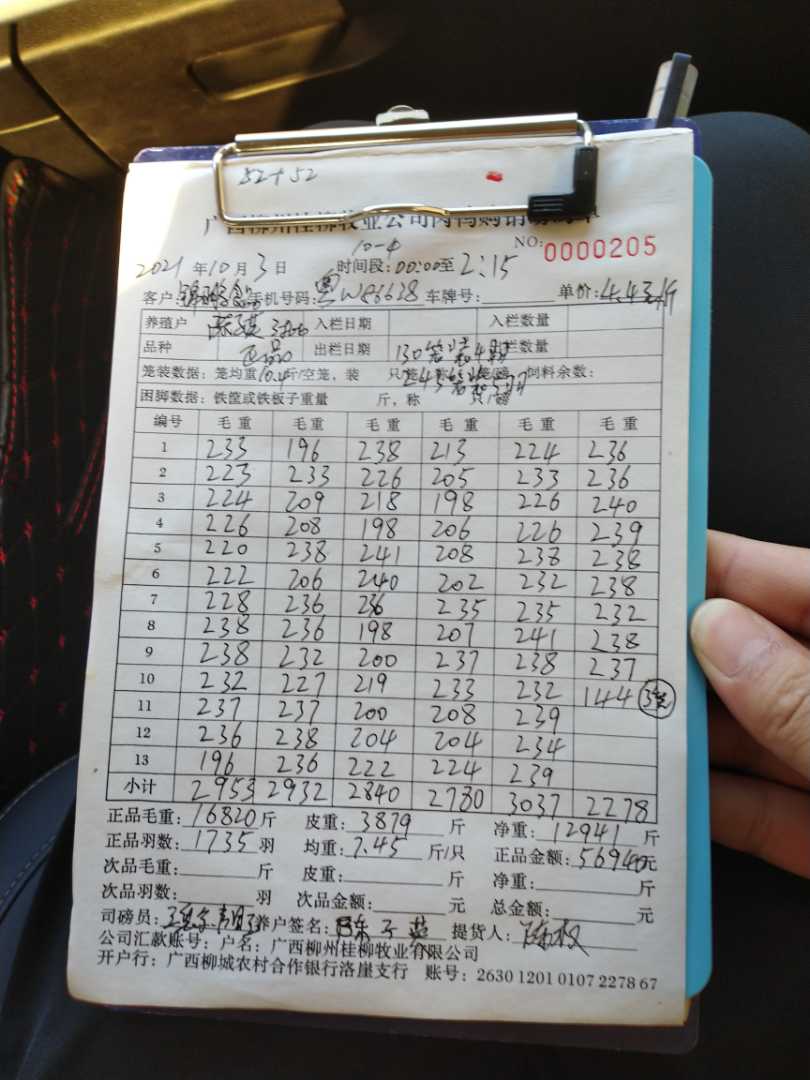 52+52
广西柳州桂柳牧业公司肉鸭购销
10-4
NO: 0000205
2021 年 10 月 3 日 时间段: 00:00 至 2:15
客户: 手机号码: 粤W86628 车牌号: 单价: 4.4元/斤
养殖户 入栏日期 入栏数量
品种 正品 出栏日期 130笼装4只 出栏数量
笼装数据: 笼均重 10.4 斤/空笼, 装 只/笼 243笼装5只 饲料余数:
困脚数据: 铁筐或铁板子重量 斤, 称 只/磅
编号 毛重 毛重 毛重 毛重 毛重 毛重
1 233 196 238 213 224 236
2 223 233 226 205 233 236
3 224 209 218 198 226 240
4 226 208 198 206 226 239
5 220 238 241 208 238 238
6 222 206 240 202 232 238
7 228 236 236 235 235 232
8 238 236 198 207 241 238
9 238 232 200 237 238 237
10 232 227 219 233 232 144 3笼
11 237 237 200 208 239
12 236 238 204 204 234
13 196 236 222 224 239
小计 2953 2932 2840 2780 3037 2278
正品毛重: 16820 斤 皮重: 3879 斤 净重: 12941 斤
正品羽数: 1735 羽 均重: 7.45 斤/只 正品金额: 56940 元
次品毛重: 斤 皮重: 斤 净重: 斤
次品羽数: 羽 次品金额: 元 总金额: 元
司磅员: 养户签名: 陈子英 提货人:
公司汇款账号: 户名: 广西柳州桂柳牧业有限公司
开户行: 广西柳城农村合作银行洛崖支行 账号: 2630 1201 0107 2278 67